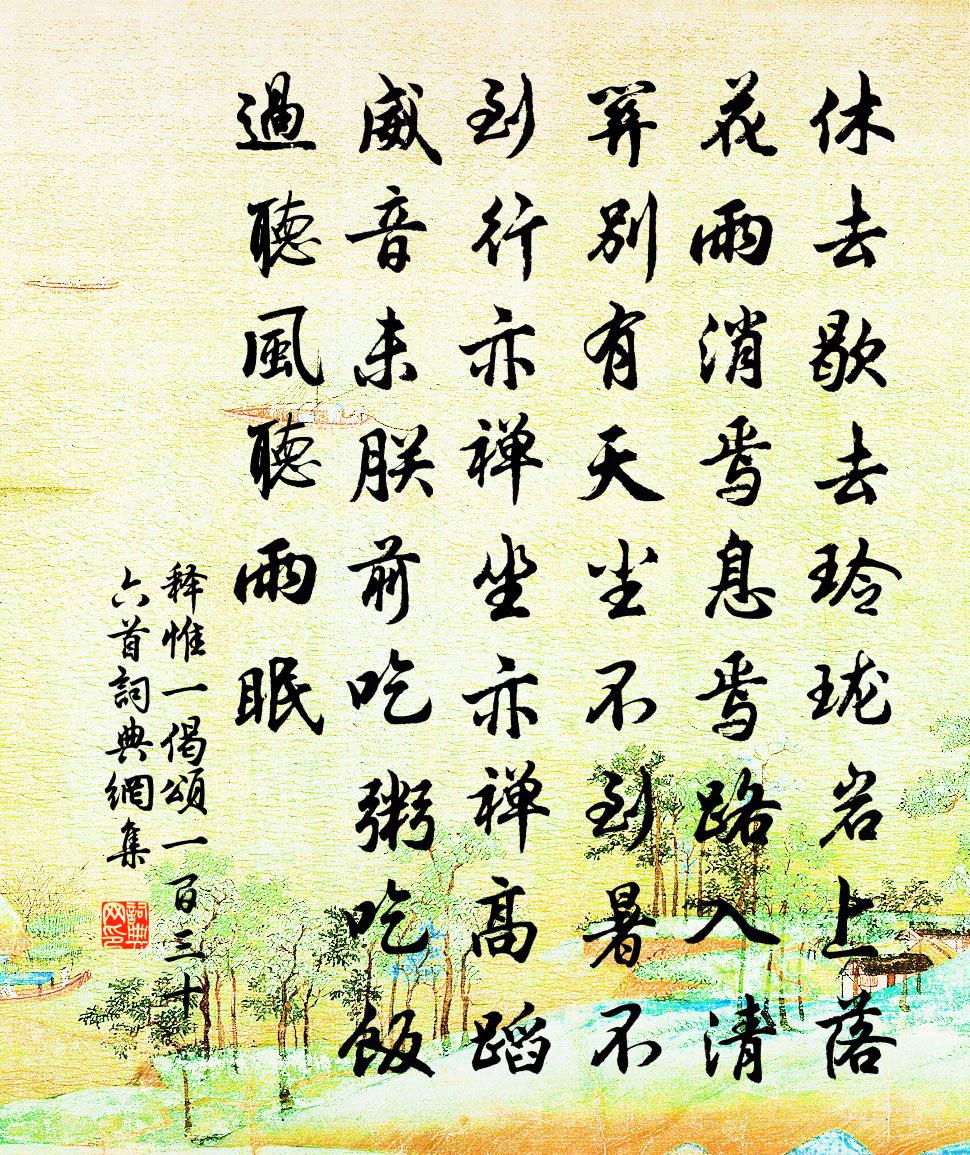 休去歇去玲珑岩上落
花雨消焉息焉路入清
别有天尘不到暑不
到行亦禅坐亦禅高蹈
威音未朕前吃粥吃饭
過聽風聽雨眠
释惟一偈頌一百三十
六首詞典網集
詞典
网印